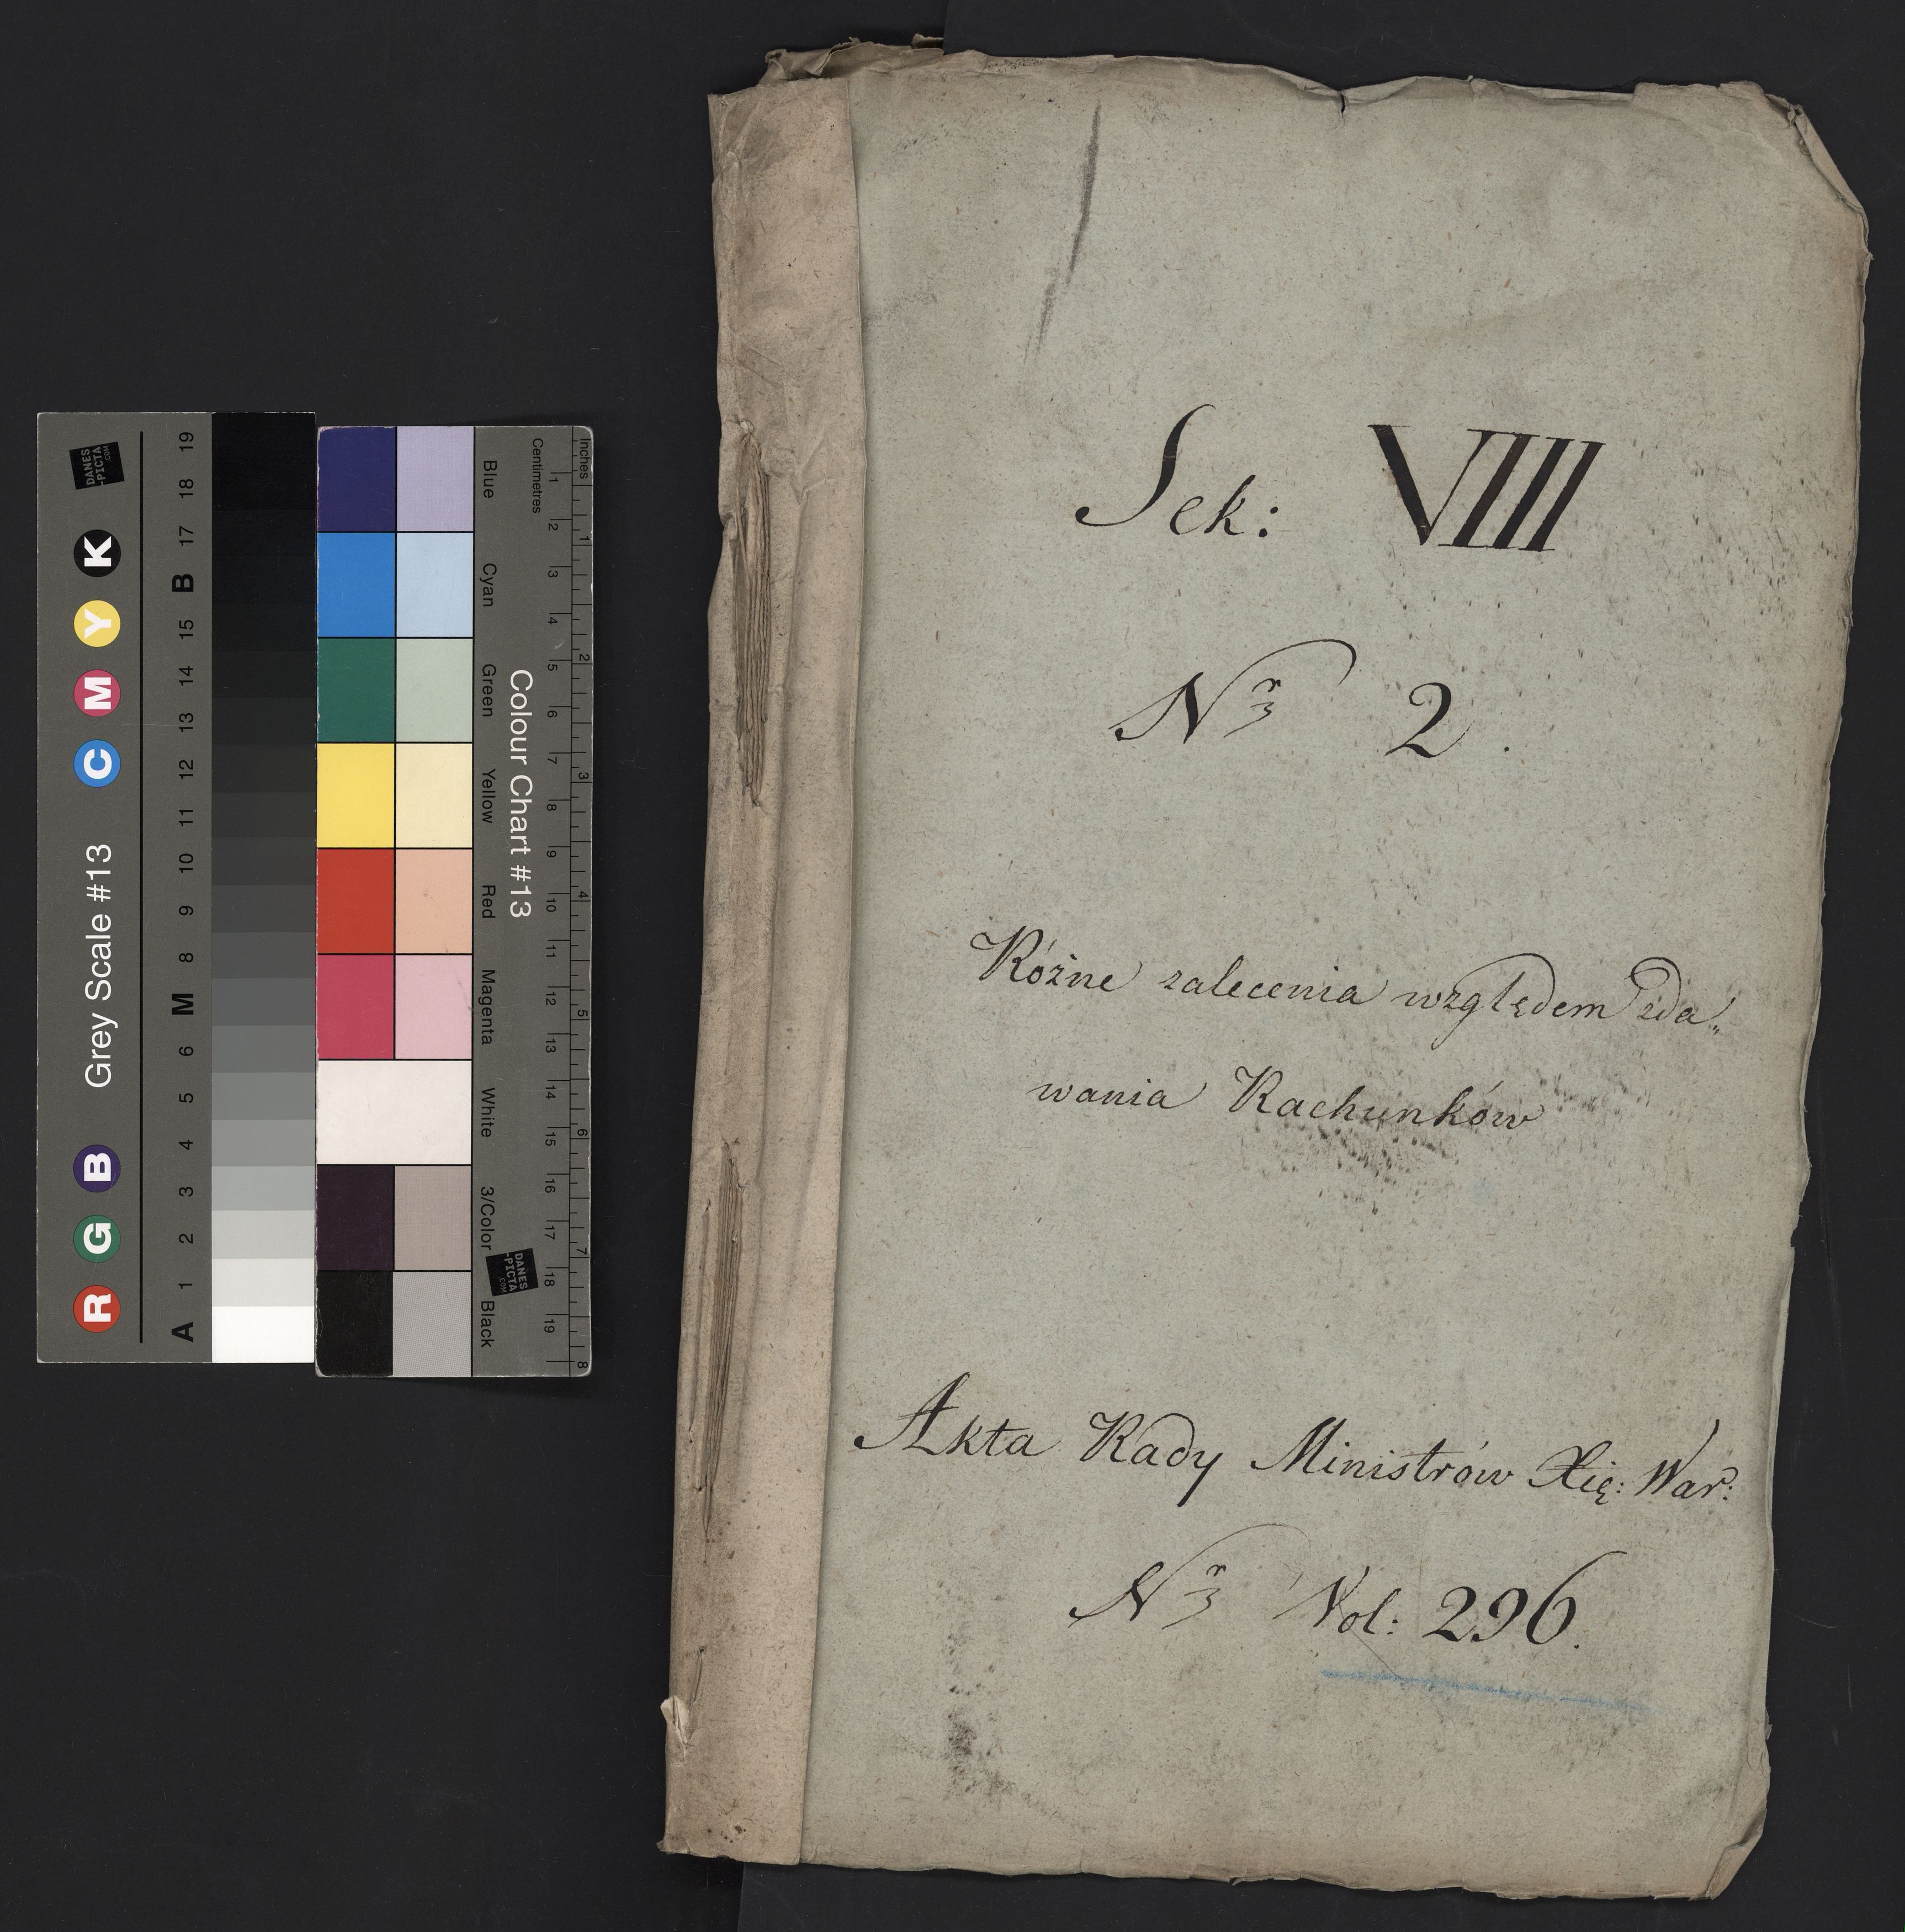 Sek: VIII
Nr 2.
Różne zalecenia względem zda„
wania Rachunków
Akta Rady Ministrów Xię: War:
Nr Vol: 296.
Grey Scale #13
R G B C M Y K
A 1 2 3 4 5 6 M 8 9 10 11 12 13 14 15 B 17 18 19
DANES
-PICTA
.COM
Colour Chart #13
Blue Cyan Green Yellow Red Magenta White 3/Color Black
Centimetres 1 2 3 4 5 6 7 8 9 10 11 12 13 14 15 16 17 18 19
Inches 1 2 3 4 5 6 7 8
DANES
-PICTA
.COM